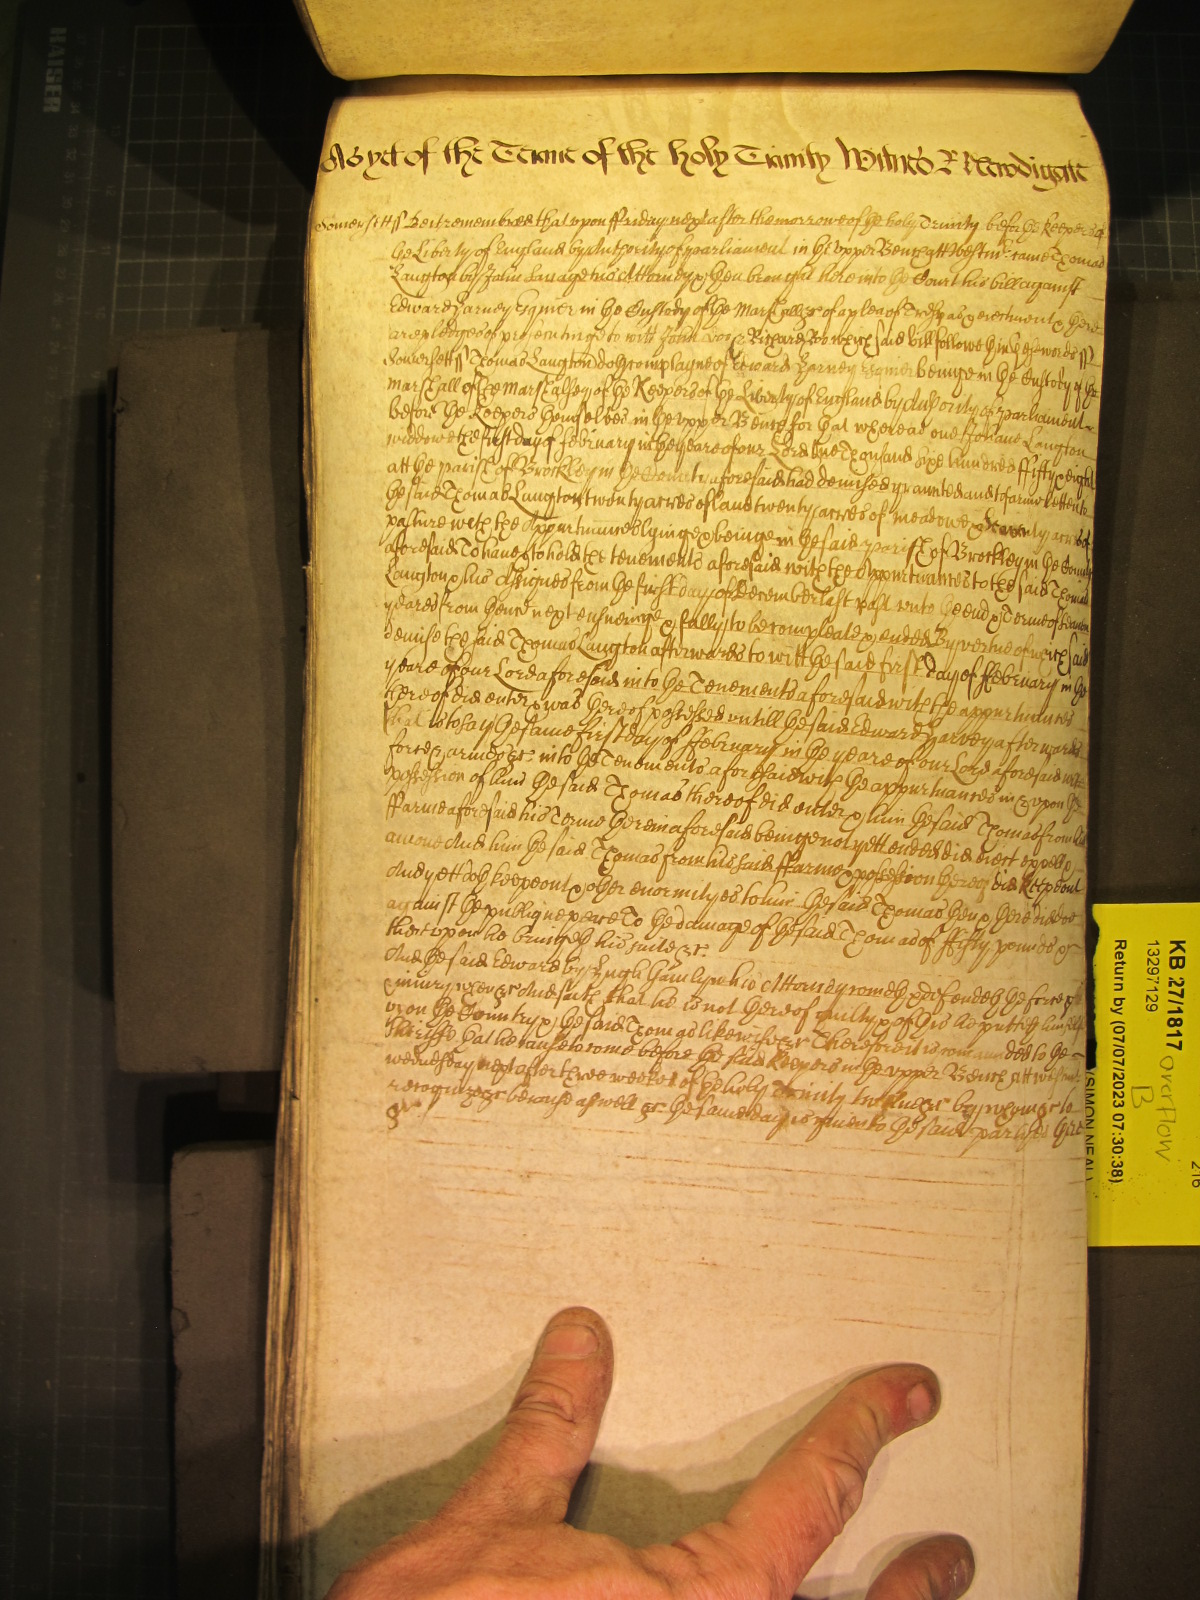 As yet of the Terme of the holy Trinity Witnes R Newdigate
Somersett ss Be it remembred that upon Friday next after the morrowe of the holy Trinity before the Keepers of
the Liberty of England by authority of parliament in the Upper Bench att Westm' came Thomas
Langton by John Savage his Attorney & then brought here into the Court his bill against
Edward Harvey Esquier in the Custody of the Marshall &c of a plea of Trespas & eiectment & there
are pledges of prosecuting to witt John Doe & Richard Roe which said bill followeth in these words ss
Somersett ss Thomas Langton doth complayne of Edward Harvey Esquier beinge in the Custody of the
Marshall of the Marshalsey of the Keepers of the Liberty of England by Authority of parliament
before the Keepers themselves in the upper Bench for that whereas one Johane Langton
widdowe the first day of February in the yeare of our Lord one Thousand six hundred fifty & eight
att the parish of Brockley in the County aforesaid had demised graunted and to farme letten to
the said Thomas Langton twenty acres of land twenty acres of meadowe & seaventy acres of
pasture with the Appurtinances lyinge & beinge in the said parish of Brockley in the County
aforesaid To have & to hold the tenements aforesaid with the Appurtinances to the said Thomas
Langton & his Assignes from the first day of December last past unto the end & Terme of seaven
yeares from thence next ensueinge & fully to be compleate & ended By vertue of which said
demise the said Thomas Langton afterwards to witt the said first day of February in the
yeare of our Lord aforesaid into the Tenements aforesaid with the appurtinances
thereof did enter & was thereof possessed untill the said Edward Harvey afterwards
that is to say the same first day of February in the yeare of our Lord aforesaid with
force & armes &c into the Tenements aforesaid with the appurtinances in & upon the
possession of him the said Thomas thereof did enter & him the said Thomas from his
Farme aforesaid his Terme therein aforesaid beinge not yett ended did eiect expell &
amove And him the said Thomas from his said Farme & possession thereof did keepe out
And yett doth keepe out & other enormityes to him the said Thomas then & there did doe
against the publique peace To the damage of the said Thomas of fifty pounds &
thereupon he bringeth his suite &c
And the said Edward by Hugh Hamlyn his Attorney cometh & defendeth the force &
iniury when &c And saith that he is not thereof guilty & of this he putteth himself
upon the Country & the said Thomas likewise &c Therefore it is commanded to the
Sheriffe that he cause to come before the said Keepers in the upper Bench att Westm'
wednesday next after three weekes of the holy Trinity twelve &c by whom &c &
recognize &c because aswell &c the same day is given to the said partyes there
&c
KB 27/1817
13297129
overflow
B
Return by (07/07/2023 07:30:38)
(SIMON NEAL)